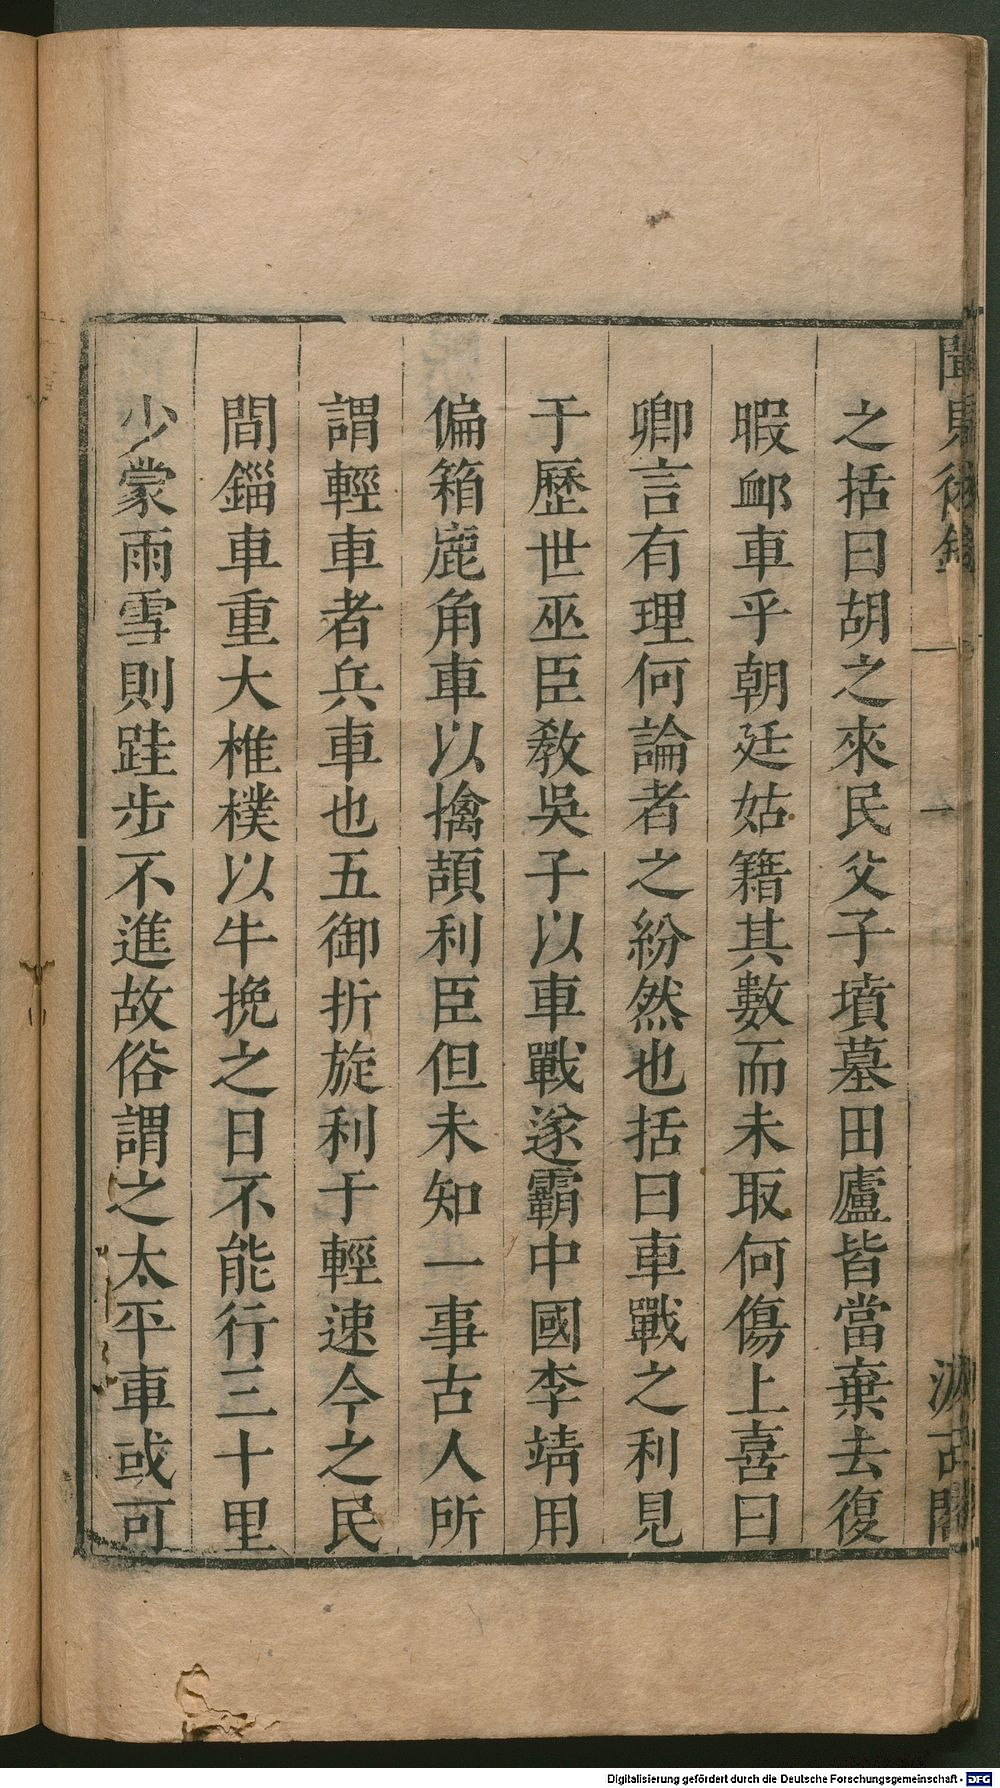 聞見後錄
一
汲古閣
之括曰胡之來民父子墳墓田廬皆當棄去復
暇衈車乎朝廷姑籍其數而未取何傷上喜曰
卿言有理何論者之紛然也括曰車戰之利見
于歷世巫臣教吳子以車戰遂霸中國李靖用
偏箱鹿角車以擒頡利臣但未知一事古人所
謂輕車者兵車也五御折旋利于輕速今之民
間錙車重大椎樸以牛挽之日不能行三十里
少蒙雨雪則跬步不進故俗謂之太平車或可
Digitalisierung gefördert durch die Deutsche Forschungsgemeinschaft - DFG